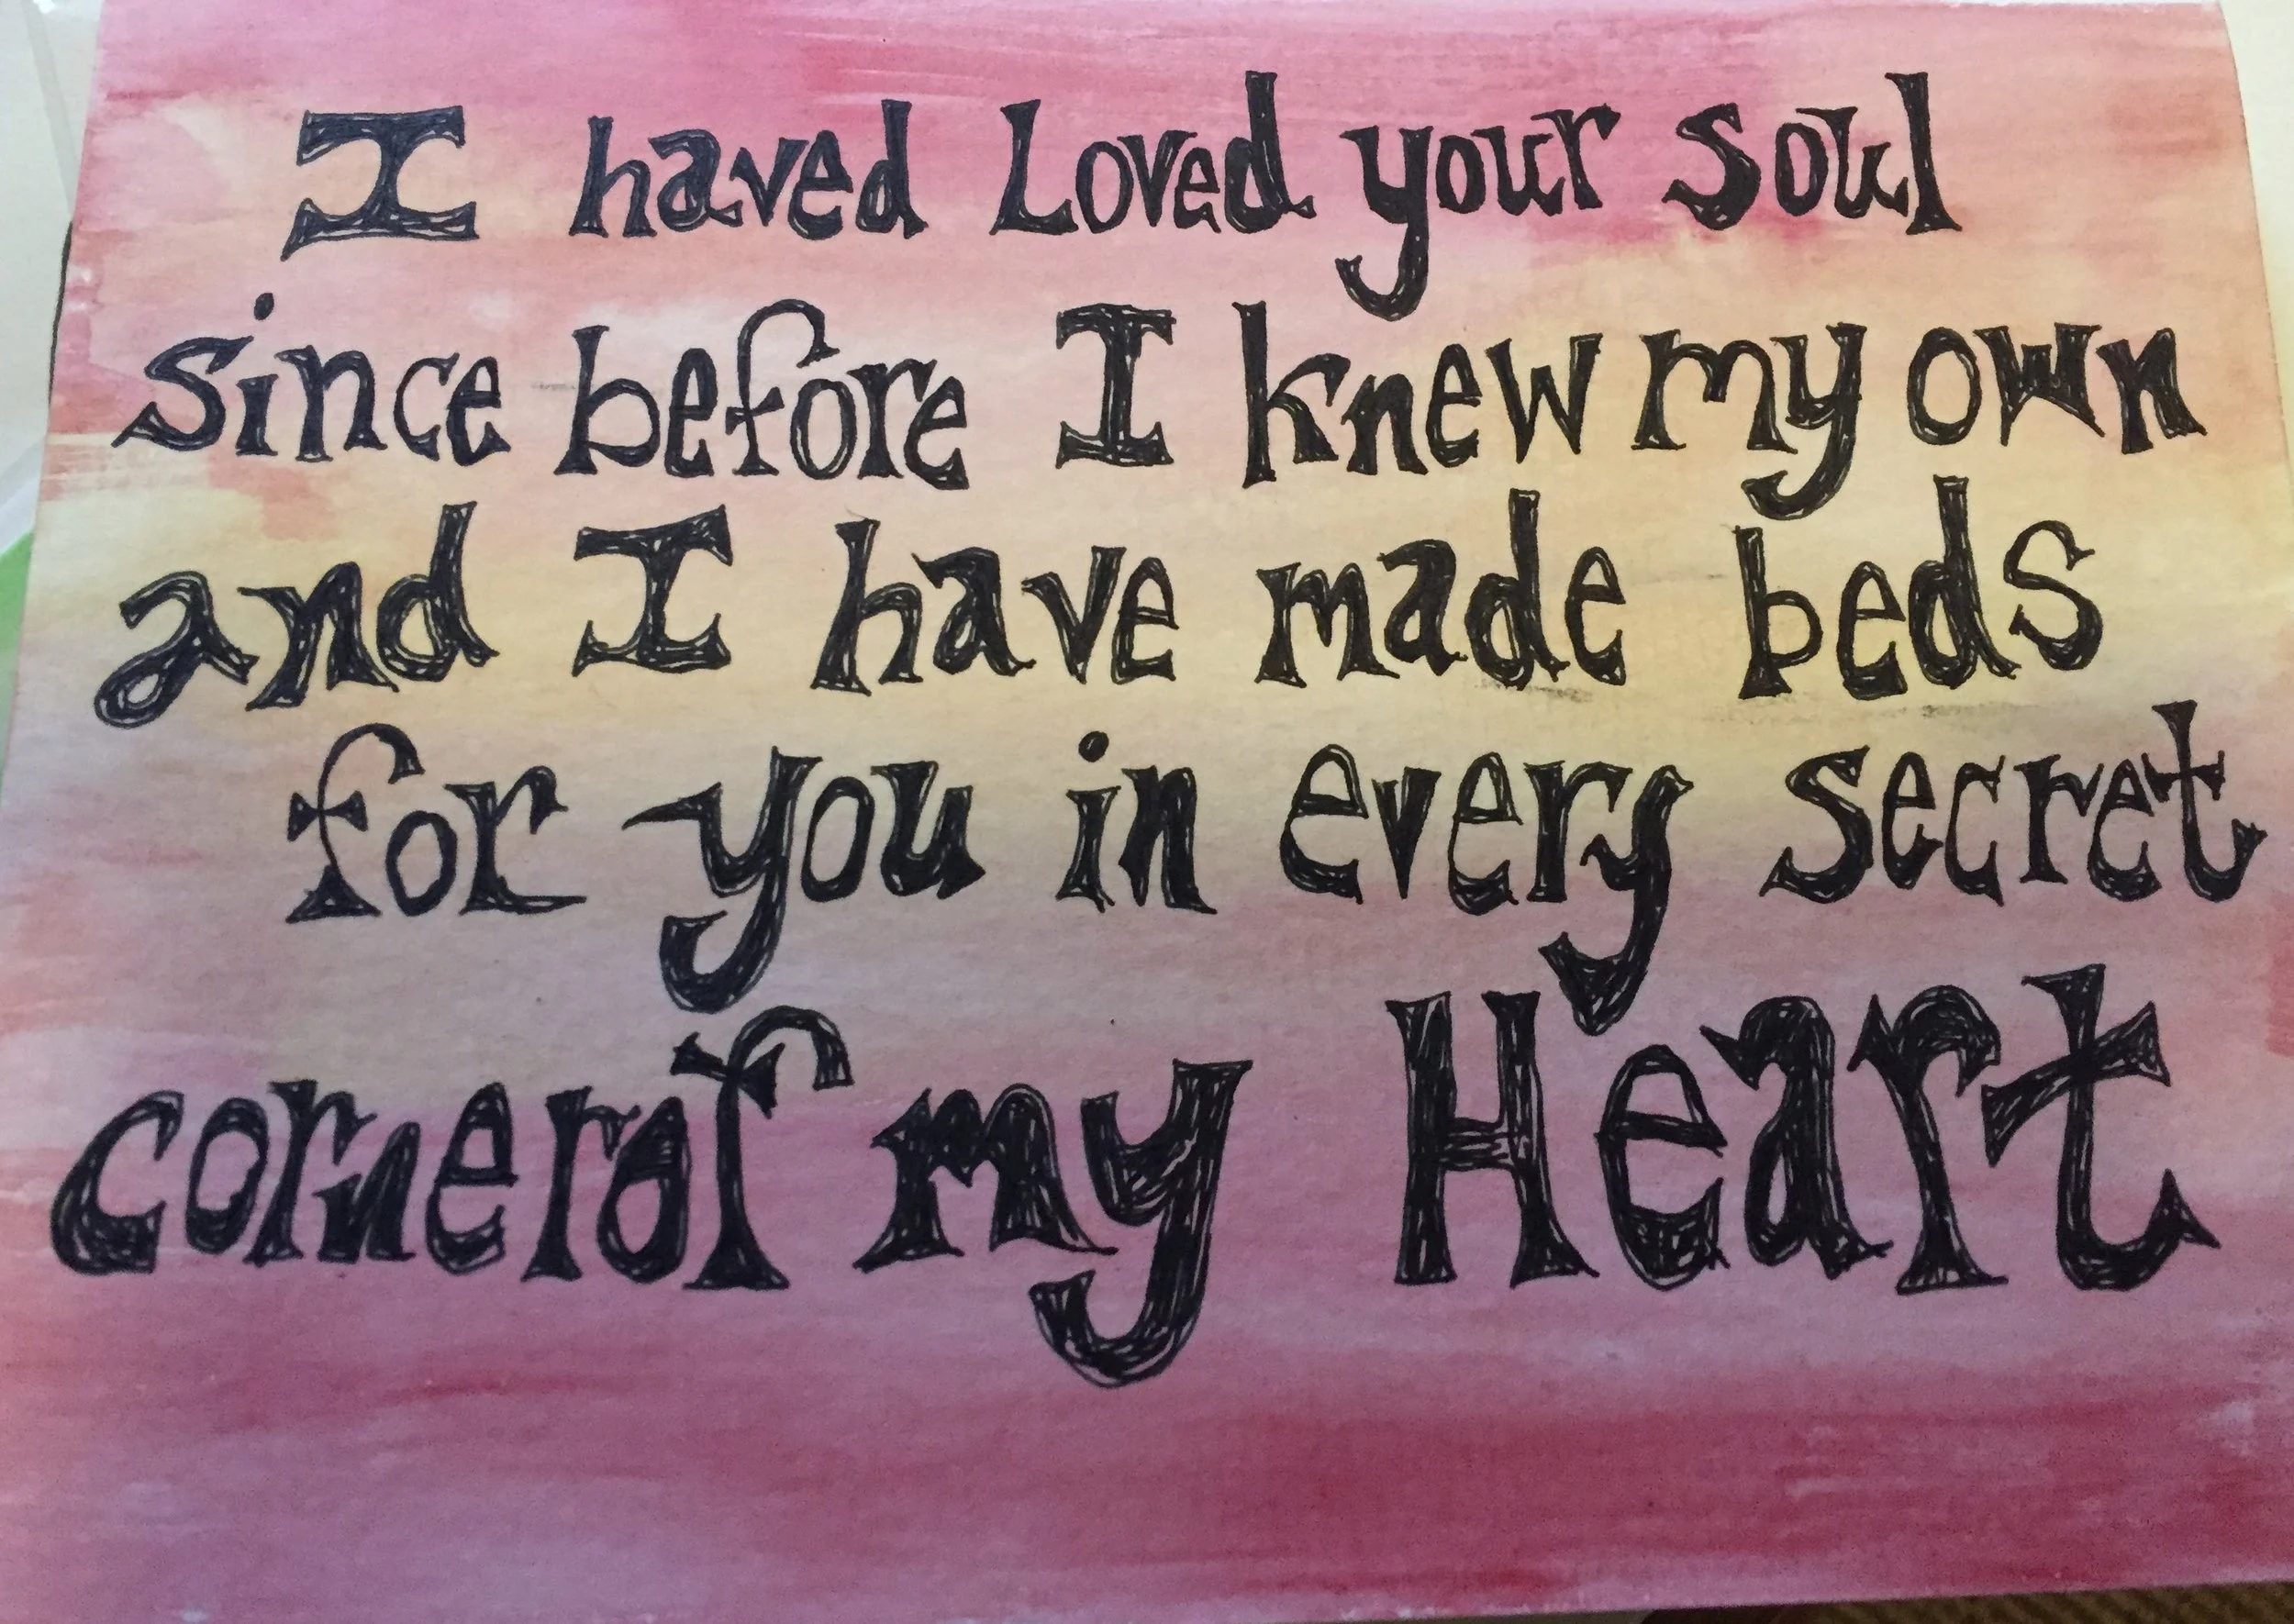 I haved Loved your soul
since before I knew my own
and I have made beds
for you in every secret
cornerof my Heart